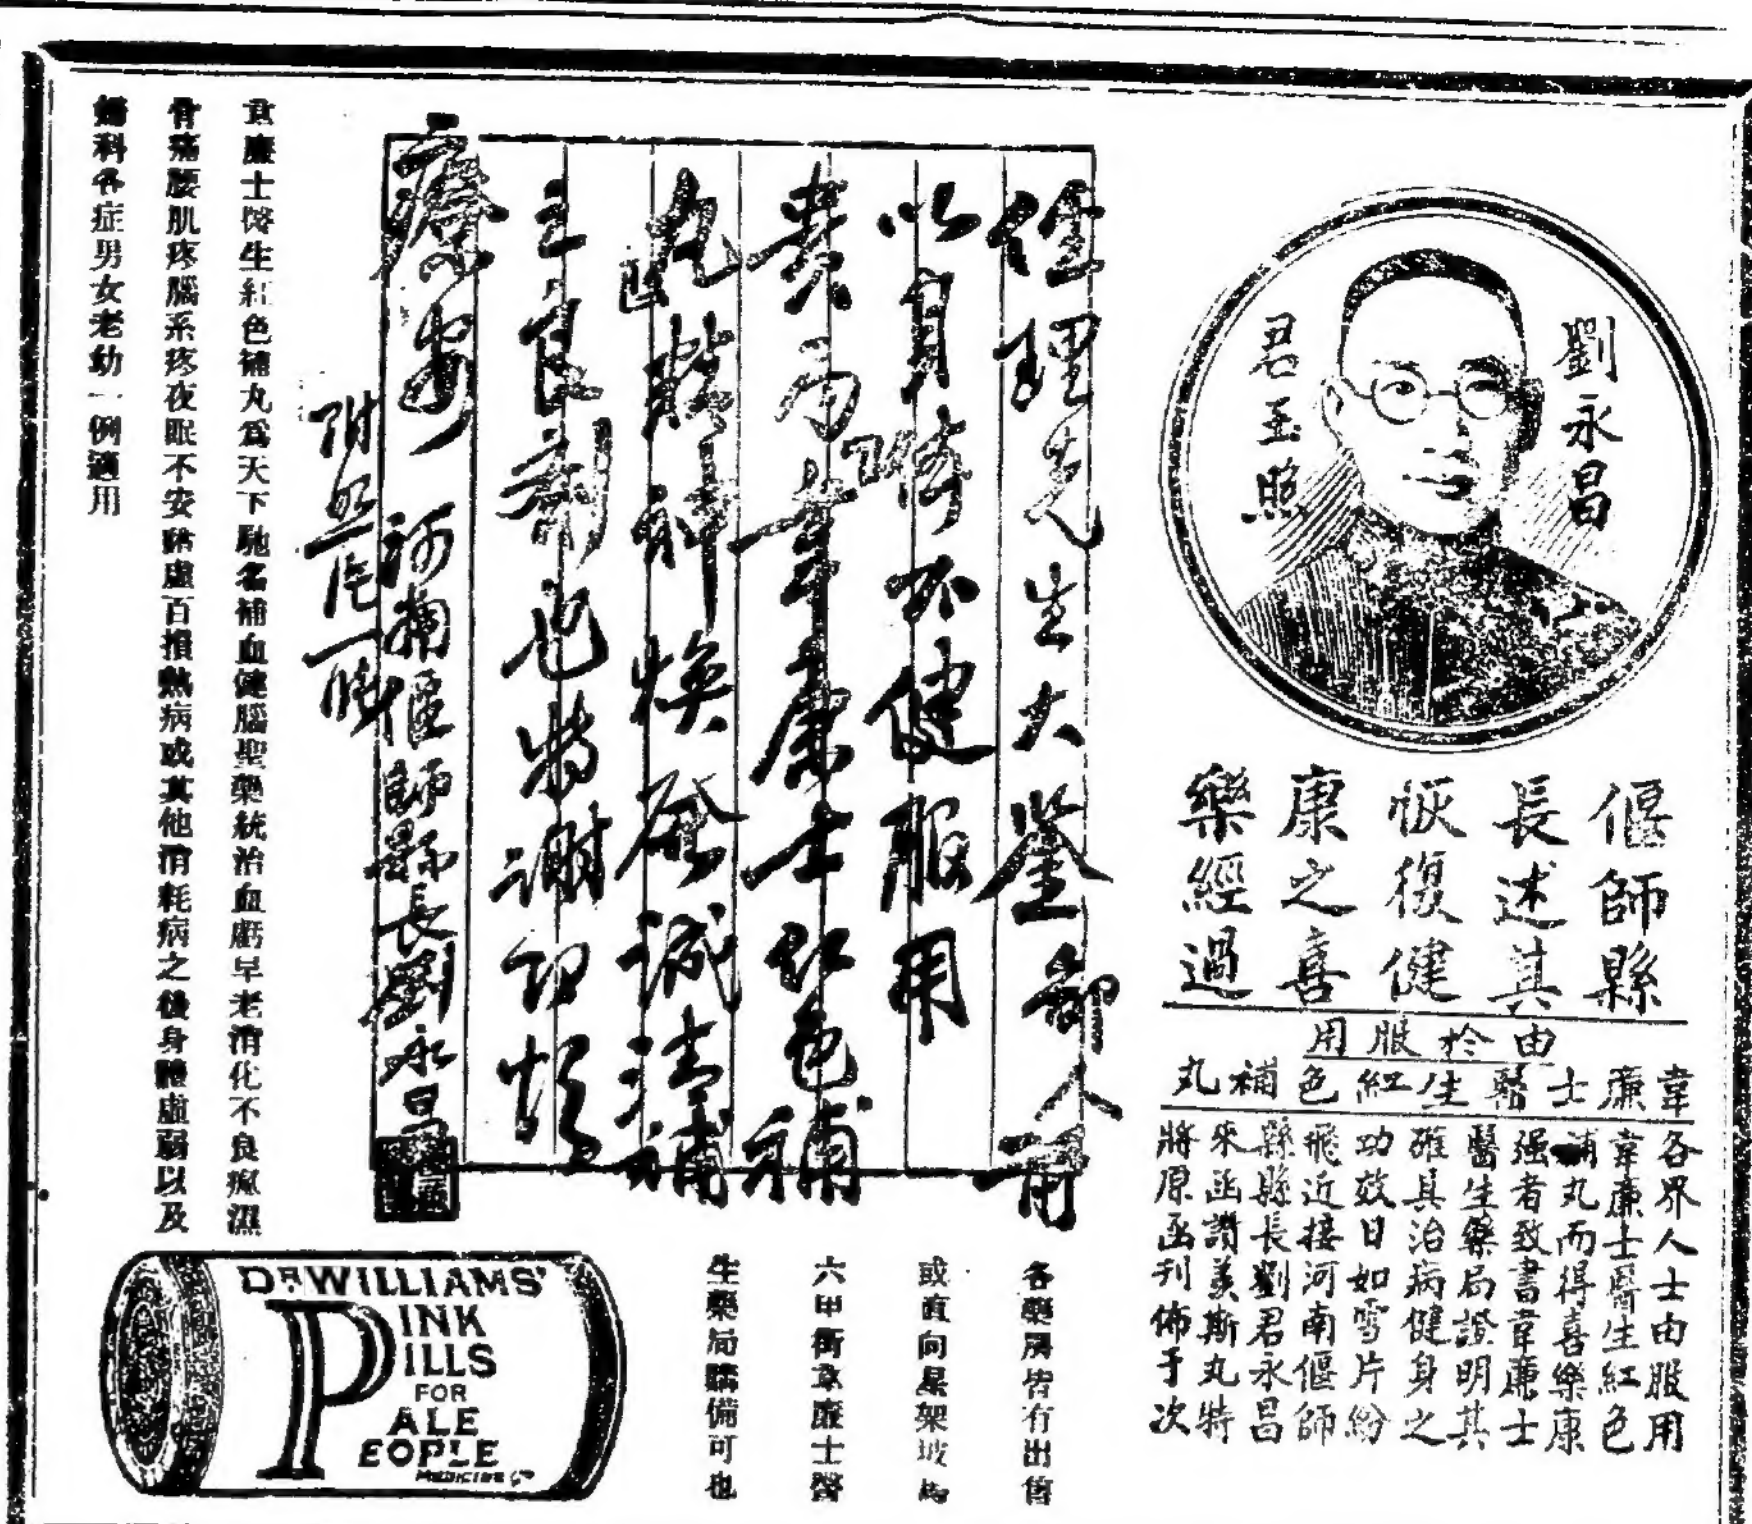 劉永昌
君玉照
偃師縣
長述其
恢復健
康之喜
樂經過
由於服用
韋廉士醫生紅色補丸
各界人士由服用
韋廉士醫生紅色
補丸而得喜樂康
强者致書韋廉士
醫生藥局證明其
確具治病健身之
功效日如雪片紛
飛近接河南偃師
縣縣長劉君永昌
來函讚美斯丸特
將原函刊佈于次
經理先生大鑒鄙人前
以身體不健服用
貴局韋廉士紅色補
丸精神煥發誠清補
之良劑也特謝即頌
療安 河南偃師縣長劉永昌
附照片一張
各藥房皆有出售
或直向星架坡
六甲街韋廉士醫
生藥局購備可也
韋廉士醫生紅色補丸爲天下馳名補血健腦聖藥統治血虧早老消化不良瘋濕
骨痛腰肌疼腦系疼夜眠不安 虛百損熱病或其他消耗病之後身體虛弱以及
婦科各症男女老幼一例適用
DR WILLIAMS'
PINK
PILLS
FOR
PALE
PEOPLE
MEDICINE Co